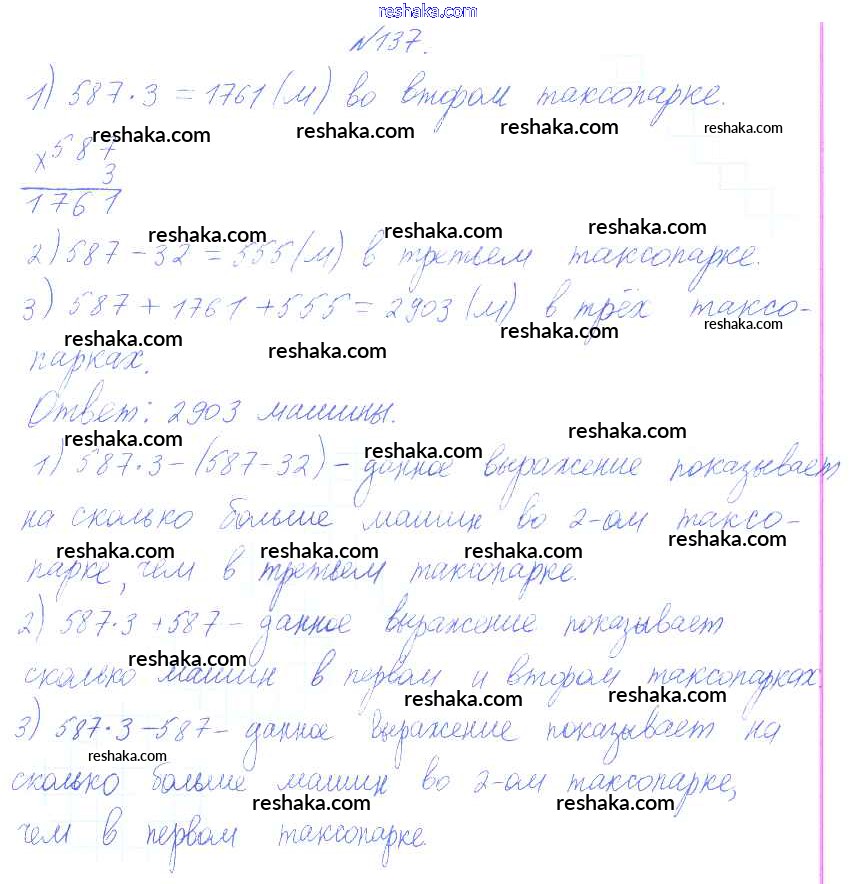 reshaka.com
№137.
1) 587·3=1761 (м) во втором таксопарке.
reshaka.com reshaka.com reshaka.com reshaka.com
×587
3
1761
reshaka.com reshaka.com reshaka.com
2) 587-32=555 (м) в третьем таксопарке.
3) 587+1761+555=2903 (м) в трёх таксо-
reshaka.com reshaka.com reshaka.com reshaka.com
парках.
Ответ: 2903 машины.
reshaka.com reshaka.com reshaka.com
1) 587·3-(587-32) - данное выражение показывает
на сколько больше машин во 2-ом таксо-
reshaka.com reshaka.com reshaka.com reshaka.com
парке, чем в третьем таксопарке.
2) 587·3+587 - данное выражение показывает
reshaka.com
сколько машин в первом и втором таксопарках.
reshaka.com reshaka.com
3) 587·3-587 - данное выражение показывает на
reshaka.com
сколько больше машин во 2-ом таксопарке,
reshaka.com reshaka.com
чем в первом таксопарке.